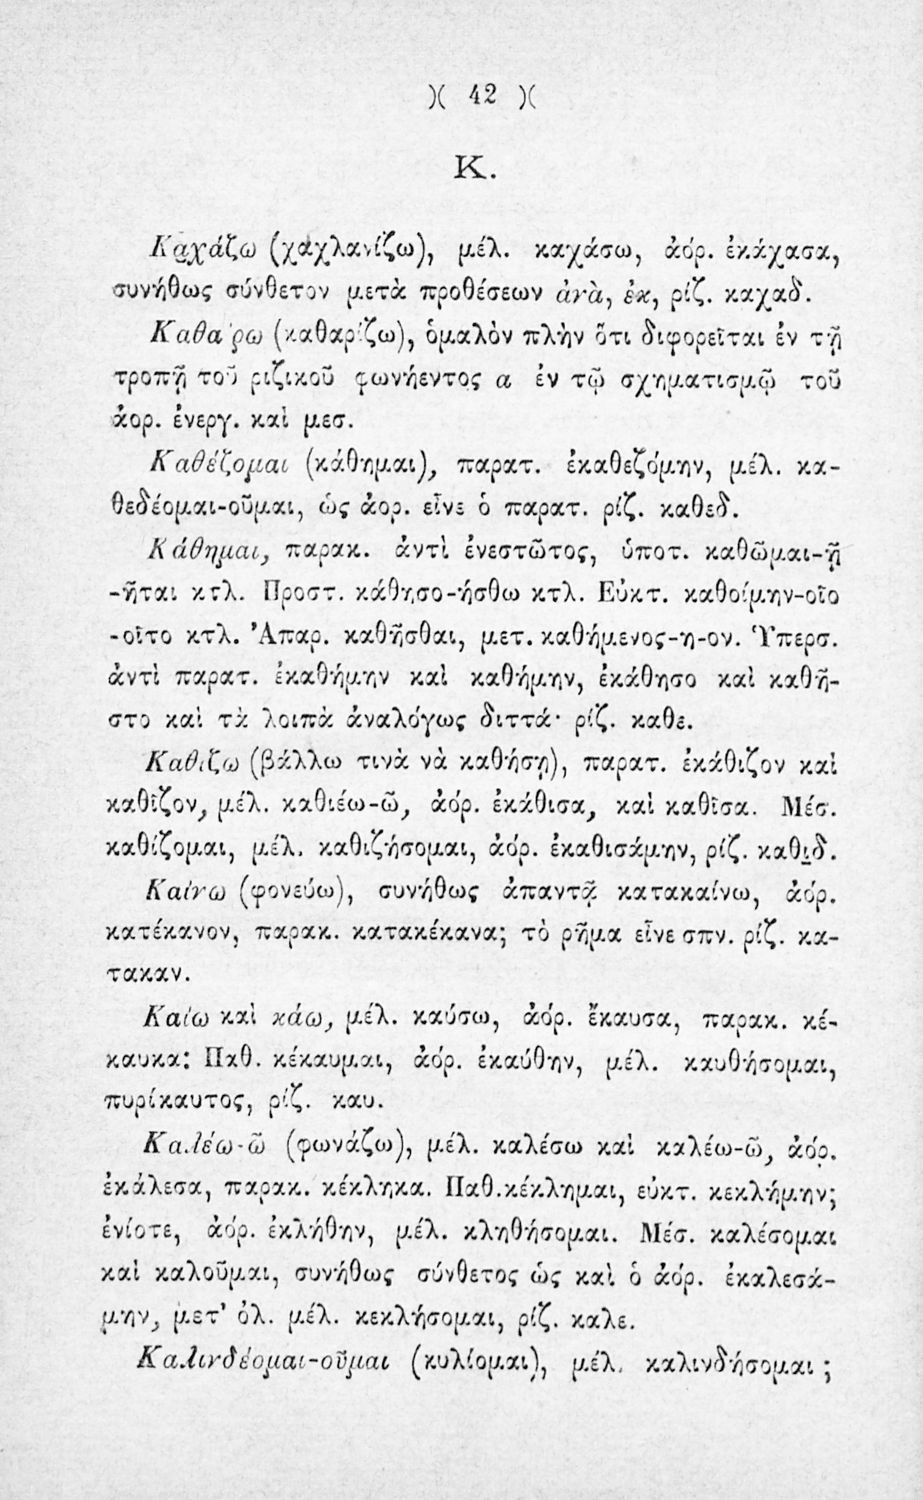 )( 42 )(
Κ.
Καχάζω (χαχλανίζω), μέλ. καχάσω, ἀόρ. ἐκάχασα,
συνήθως σύνθετον μετὰ προθέσεων ἀνὰ, ἐκ, ρίζ. καχαδ.
Καθαίρω (καθαρίζω), ὁμαλὸν πλὴν ὅτι διφορεῖται ἐν τῇ
τροπῇ τοῦ ριζικοῦ φωνήεντος α ἐν τῷ σχηματισμῷ τοῦ
ἀορ. ἐνεργ. καὶ μεσ.
Καθέζομαι (κάθημαι), παρατ. ἐκαθεζόμην, μέλ. κα-
θεδέομαι-οῦμαι, ὡς ἀορ. εἶνε ὁ παρατ. ρίζ. καθεδ.
Κάθημαι, παρακ. ἀντὶ ἐνεστῶτος, ὑποτ. καθῶμαι-ῇ
-ῆται κτλ. Προστ. κάθησο-ήσθω κτλ. Εὐκτ. καθοίμην-οῖο
-οῖτο κτλ. Ἀπαρ. καθῆσθαι, μετ. καθήμενος-η-ον. Ὑπερσ.
ἀντὶ παρατ. ἐκαθήμην καὶ καθήμην, ἐκάθησο καὶ καθῆ-
στο καὶ τὰ λοιπὰ ἀναλόγως διττά· ρίζ. καθε.
Καθίζω (βάλλω τινὰ νὰ καθήσῃ), παρατ. ἐκάθιζον καὶ
καθῖζον, μέλ. καθιέω-ῶ, ἀόρ. ἐκάθισα, καὶ καθῖσα. Μέσ.
καθίζομαι, μέλ. καθιζήσομαι, ἀόρ. ἐκαθισάμην, ρίζ. καθιδ.
Καίνω (φονεύω), συνήθως ἀπαντᾷ κατακαίνω, ἀόρ.
κατέκανον, παρακ. κατακέκανα; τὸ ρῆμα εἶνε σπν. ρίζ. κα-
τακαν.
Καίω καὶ κάω, μέλ. καύσω, ἀόρ. ἔκαυσα, παρακ. κέ-
καυκα: Παθ. κέκαυμαι, ἀόρ. ἐκαύθην, μέλ. καυθήσομαι,
πυρίκαυτος, ρίζ. καυ.
Καλέω-ῶ (φωνάζω), μέλ. καλέσω καὶ καλέω-ῶ, ἀόρ.
ἐκάλεσα, παρακ. κέκληκα. Παθ.κέκλημαι, εὐκτ. κεκλήμην;
ἐνίοτε, ἀόρ. ἐκλήθην, μέλ. κληθήσομαι. Μέσ. καλέσομαι
καὶ καλοῦμαι, συνήθως σύνθετος ὡς καὶ ὁ ἀόρ. ἐκαλεσά-
μην, μετ' ὀλ. μέλ. κεκλήσομαι, ρίζ. καλε.
Καλινδέομαι-οῦμαι (κυλίομαι), μέλ. καλινδήσομαι ;